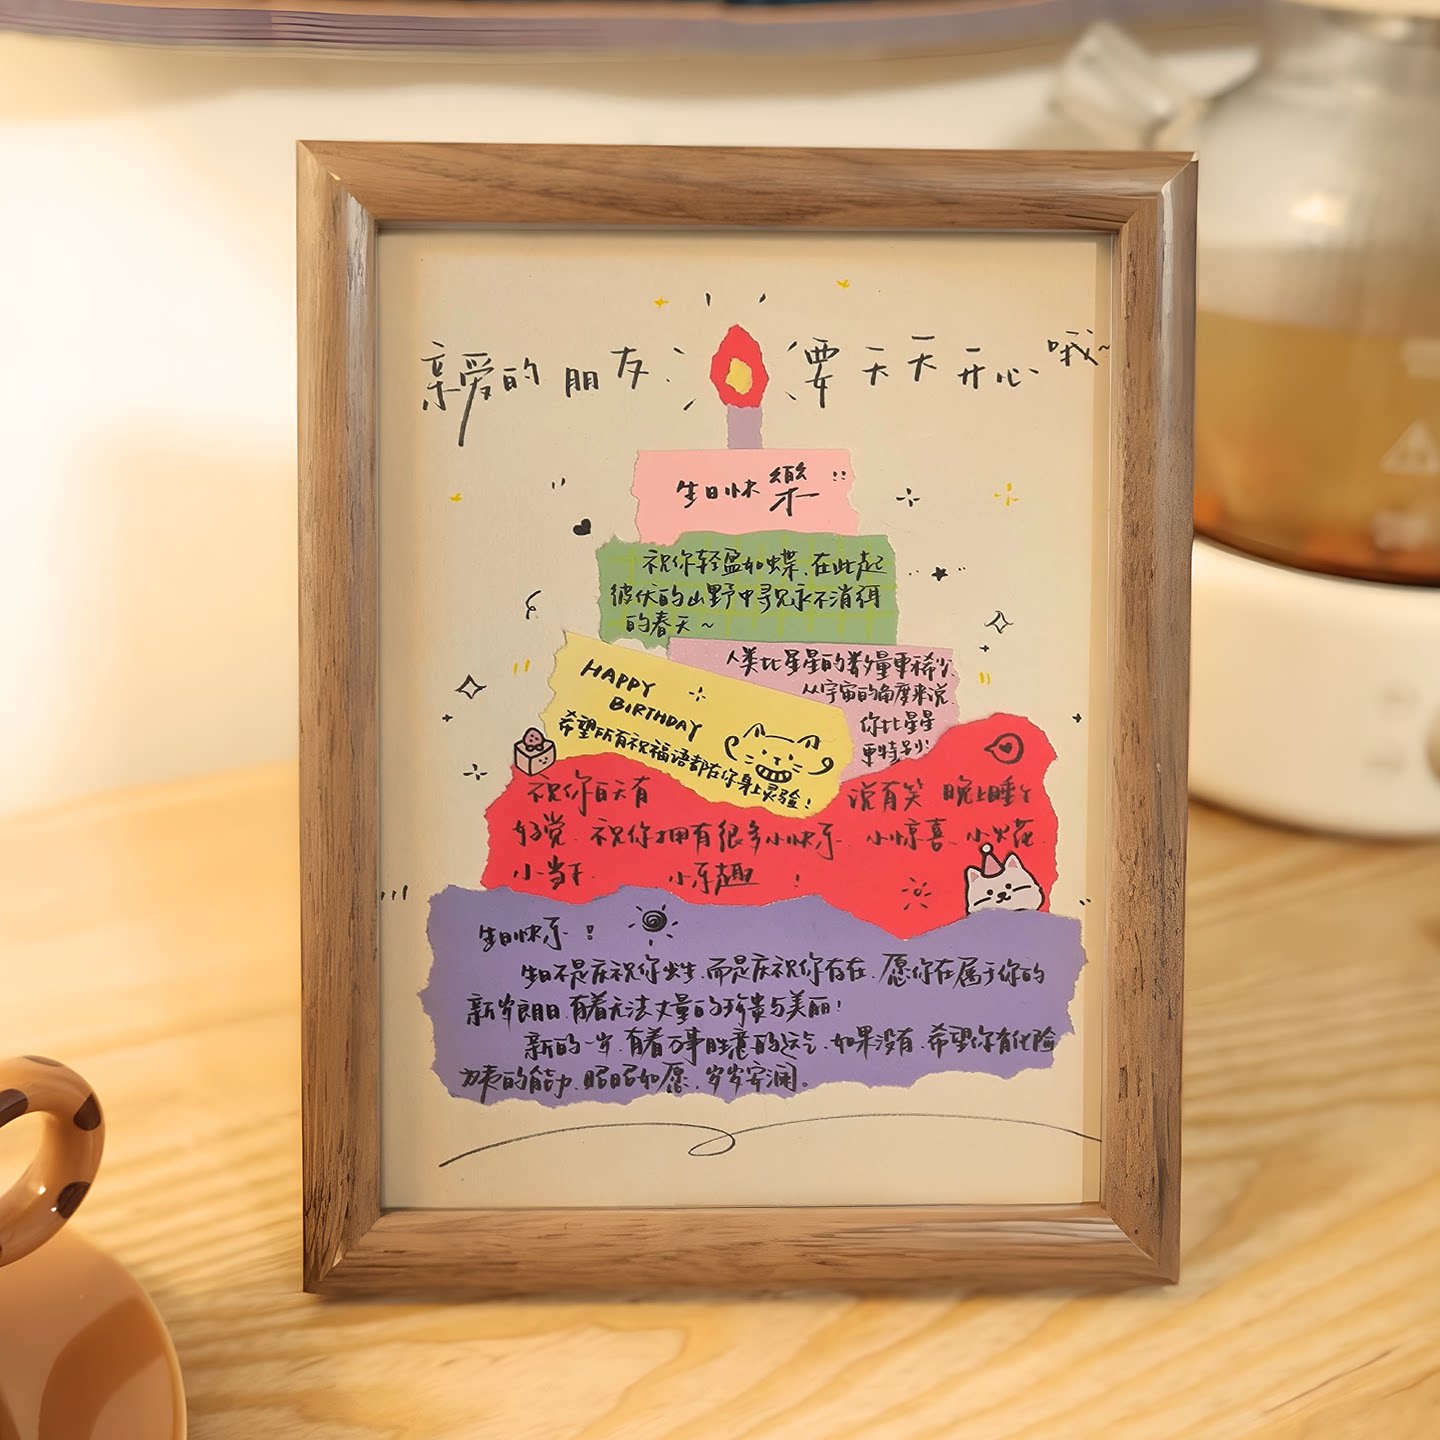 亲爱的朋友 要天天开心哦~
生日快樂
祝你轻盈如蝶、在此起
彼伏的山野中寻见永不消弭
的春天~
人类比星星的数量更稀少、
从宇宙的角度来说、
你比星星
更特别!
HAPPY
BIRTHDAY
希望所有祝福语都在你身上灵验!
祝你白天有 说有笑 晚上睡个
好觉. 祝你拥有很多小快乐. 小惊喜. 小火花
小当干. 小乐趣 !
生日快乐 !
生日不是庆祝你出生.而是庆祝你存在. 愿你在属于你的
新岁朗日.有着无法丈量的珍贵与美丽!
新的一岁.有着万事胜意的运气.如果没有.希望你有化险
为夷的能力.昭昭如愿.岁岁安澜。